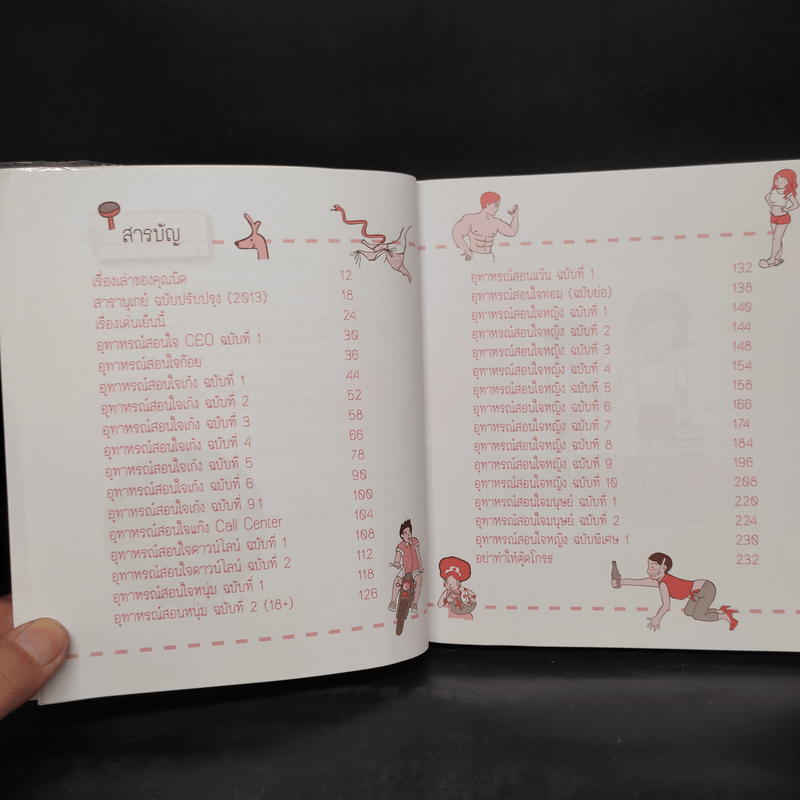 สารบัญ
เรื่องเล่าของคุณนิด 12
สารานุเกย์ ฉบับปรับปรุง (2013) 18
เรื่องเด่นเย็นนี้... 24
อุทาหรณ์สอนใจ CEO ฉบับที่ 1 30
อุทาหรณ์สอนใจก๊อย 36
อุทาหรณ์สอนใจเก้ง ฉบับที่ 1 44
อุทาหรณ์สอนใจเก้ง ฉบับที่ 2 52
อุทาหรณ์สอนใจเก้ง ฉบับที่ 3 58
อุทาหรณ์สอนใจเก้ง ฉบับที่ 4 66
อุทาหรณ์สอนใจเก้ง ฉบับที่ 5 78
อุทาหรณ์สอนใจเก้ง ฉบับที่ 6 90
อุทาหรณ์สอนใจเก้ง ฉบับที่ 91 100
อุทาหรณ์สอนใจแก๊ง Call Center 104
อุทาหรณ์สอนใจดาวน์ไลน์ ฉบับที่ 1 108
อุทาหรณ์สอนใจดาวน์ไลน์ ฉบับที่ 2 112
อุทาหรณ์สอนใจหนุ่ม ฉบับที่ 1 118
อุทาหรณ์สอนหนุ่ม ฉบับที่ 2 (18+) 126
อุทาหรณ์สอนแว้น ฉบับที่ 1 132
อุทาหรณ์สอนใจทอม (ฉบับย่อ) 138
อุทาหรณ์สอนใจหญิง ฉบับที่ 1 140
อุทาหรณ์สอนใจหญิง ฉบับที่ 2 144
อุทาหรณ์สอนใจหญิง ฉบับที่ 3 148
อุทาหรณ์สอนใจหญิง ฉบับที่ 4 154
อุทาหรณ์สอนใจหญิง ฉบับที่ 5 158
อุทาหรณ์สอนใจหญิง ฉบับที่ 6 166
อุทาหรณ์สอนใจหญิง ฉบับที่ 7 174
อุทาหรณ์สอนใจหญิง ฉบับที่ 8 184
อุทาหรณ์สอนใจหญิง ฉบับที่ 9 196
อุทาหรณ์สอนใจหญิง ฉบับที่ 10 208
อุทาหรณ์สอนใจมนุษย์ ฉบับที่ 1 220
อุทาหรณ์สอนใจมนุษย์ ฉบับที่ 2 224
อุทาหรณ์สอนใจหญิง ฉบับพิเศษ 1 230
อย่าทำให้ตุ๊ดโกรธ 232